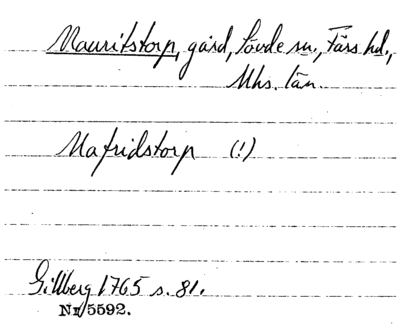 Mauritstorp, gård, Sövde sn., Färs hd.,
Mhs. län.
Mafridstorp (!)
Gillberg 1765 s. 81.
Nr 5592.